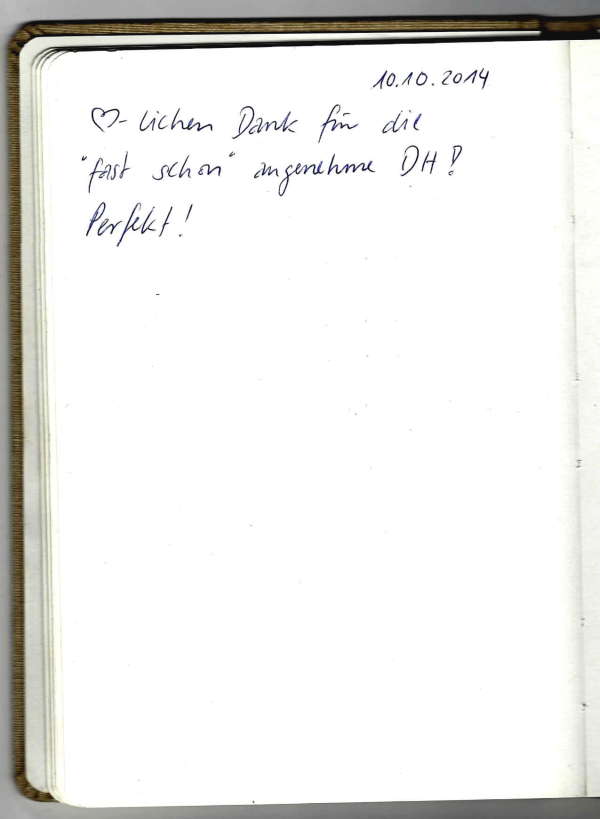 10.10.2014
♡-lichen Dank für die
"fast schon" angenehme DH!
Perfekt!